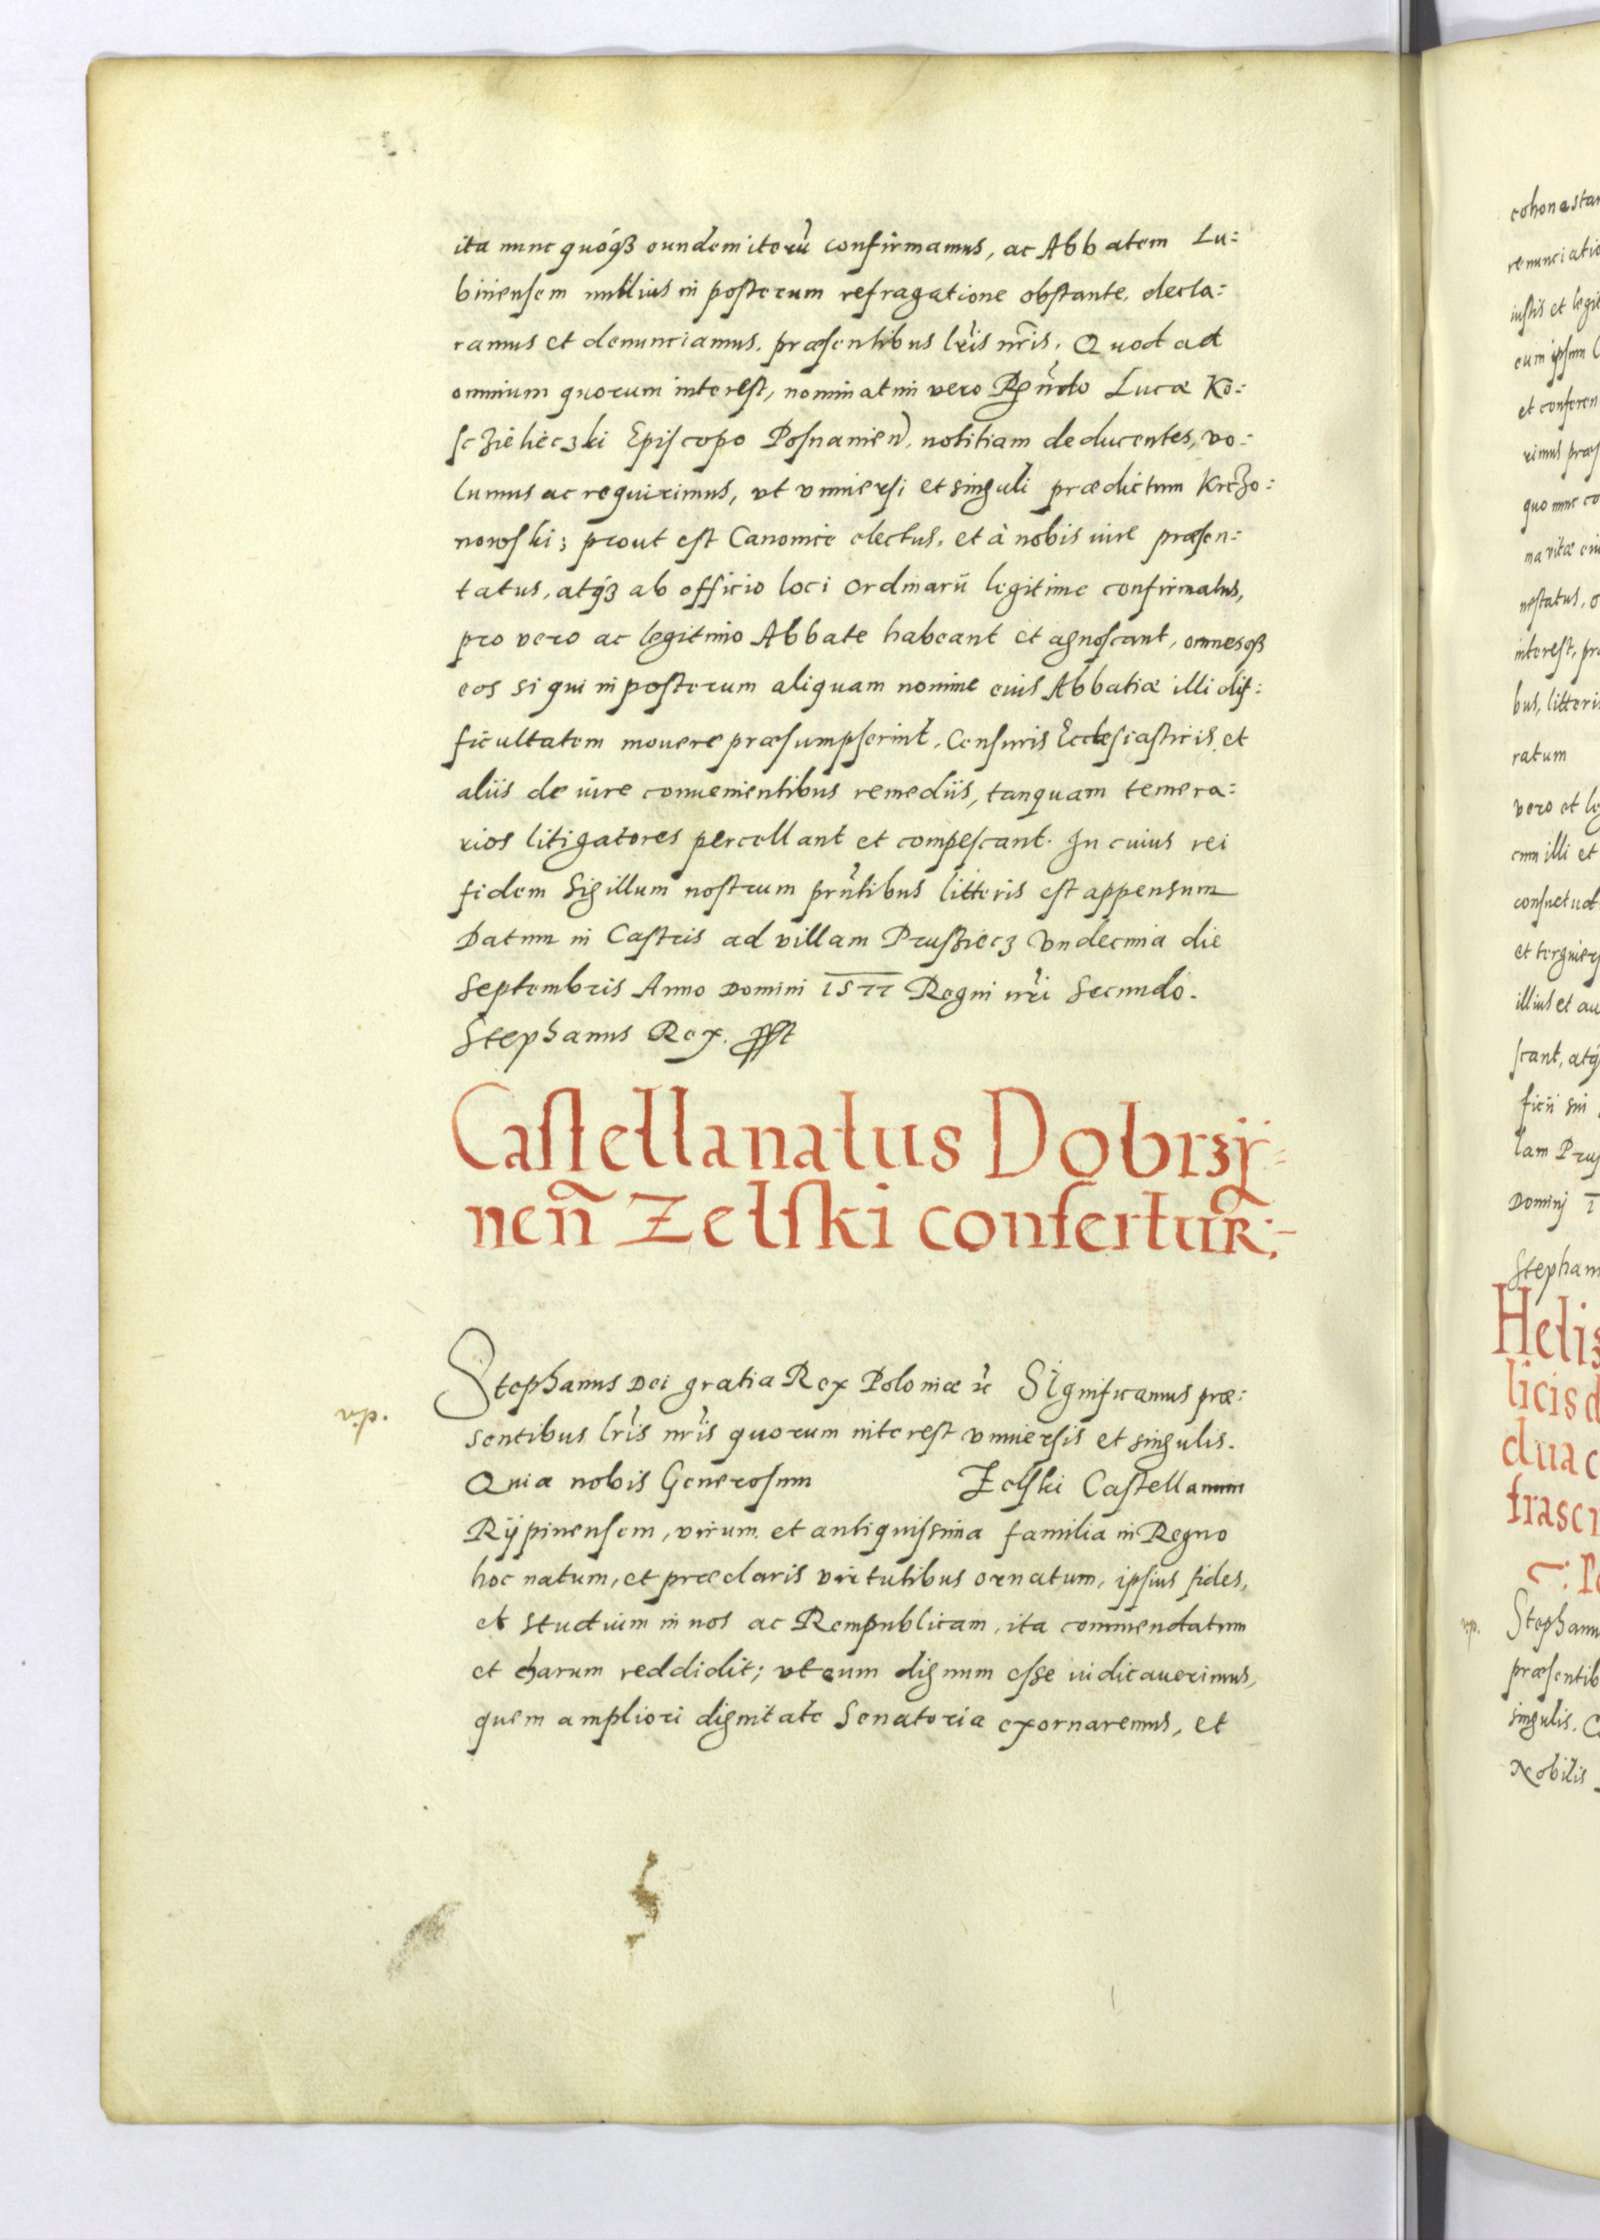 ita nunc quóqȝ eundem iterũ confirmamus, ac Abbatem Lu:
binensem nullius in posterum refragatione obstante, decla:
ramus et denunciamus, præsentibus lr̃is nr̃is. Quod ad
omnium quorum interest, nominatim vero Rñdo Lucæ Ko:
scziele czki Episcopo Posnanieñ. notitiam deducentes, vo:
lumus ac requirimus, vt vniuersi et singuli prædictum Krczo:
nowski; prout est Canonice electus, et à nobis iure præsen:
tatus, atqȝ ab officio loci ordinarii legitime confirmatus,
pro vero ac legitimo Abbate habeant et agnoscant, omnesqȝ
eos si qui in posterum aliquam nomine eius Abbatiæ illi dif:
ficultatem mouere præsumpserint, Censuris Ecclesiasticis, et
aliis de iure conuenientibus remediis, tanquam temera:
rios litigatores percellant et compescant. In cuius rei
fidem Sigillum nostrum pñtibus litteris est appensum
Datum in Castris ad villam Prusziecz Vndecima die
Septembris Anno Domini 1577 Regni nr̃i Secundo.
Stephanus Rex. sspt
Castellanatus Dobrzÿ=
neñ Zelski confertur:-
Stephanus Dei gratia Rex Poloniæ ꝛc Significamus præ:
sentibus lr̃is nr̃is quorum interest vniuersis et singulis.
Quia nobis Generosum Zelski Castellanum
Rÿpinensem, virum et antiquissima familia in Regno
hoc natum, et præclaris virtutibus ornatum, ipsius fides,
et studium in nos ac Rempublicam, ita commendatum
et charum reddidit; vt eum dignum esse iudicauerimus,
quem ampliori dignitate Senatoria exornaremus, et
cohonesta
renunciatio
iustis et legit
eum ipsum
et conferen
rimus præs
quo nunc co
na vitæ eiu
nestatus, o
interest, pr
bus, litteri
ratum
vero et le
cum illi et
consuetud
et tergiuers
illius et au
scant, atq
ficii sui
lam Prus
Dominj 1
Stephan
Helis
licis d
dua c
frascr
Stephanu
præsentib
singulis. Q
Nobilis